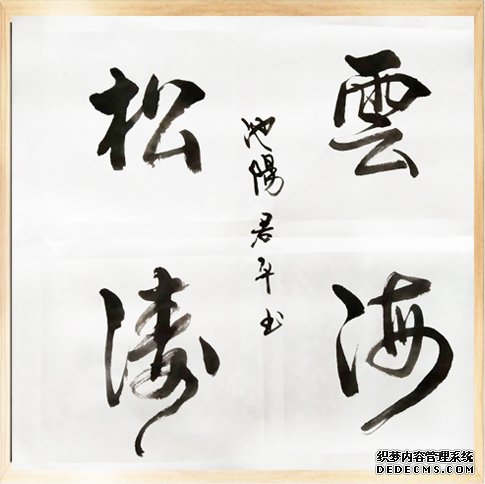 雲海
松濤
池陽君平书
织梦内容管理系统
DEDECMS.COM